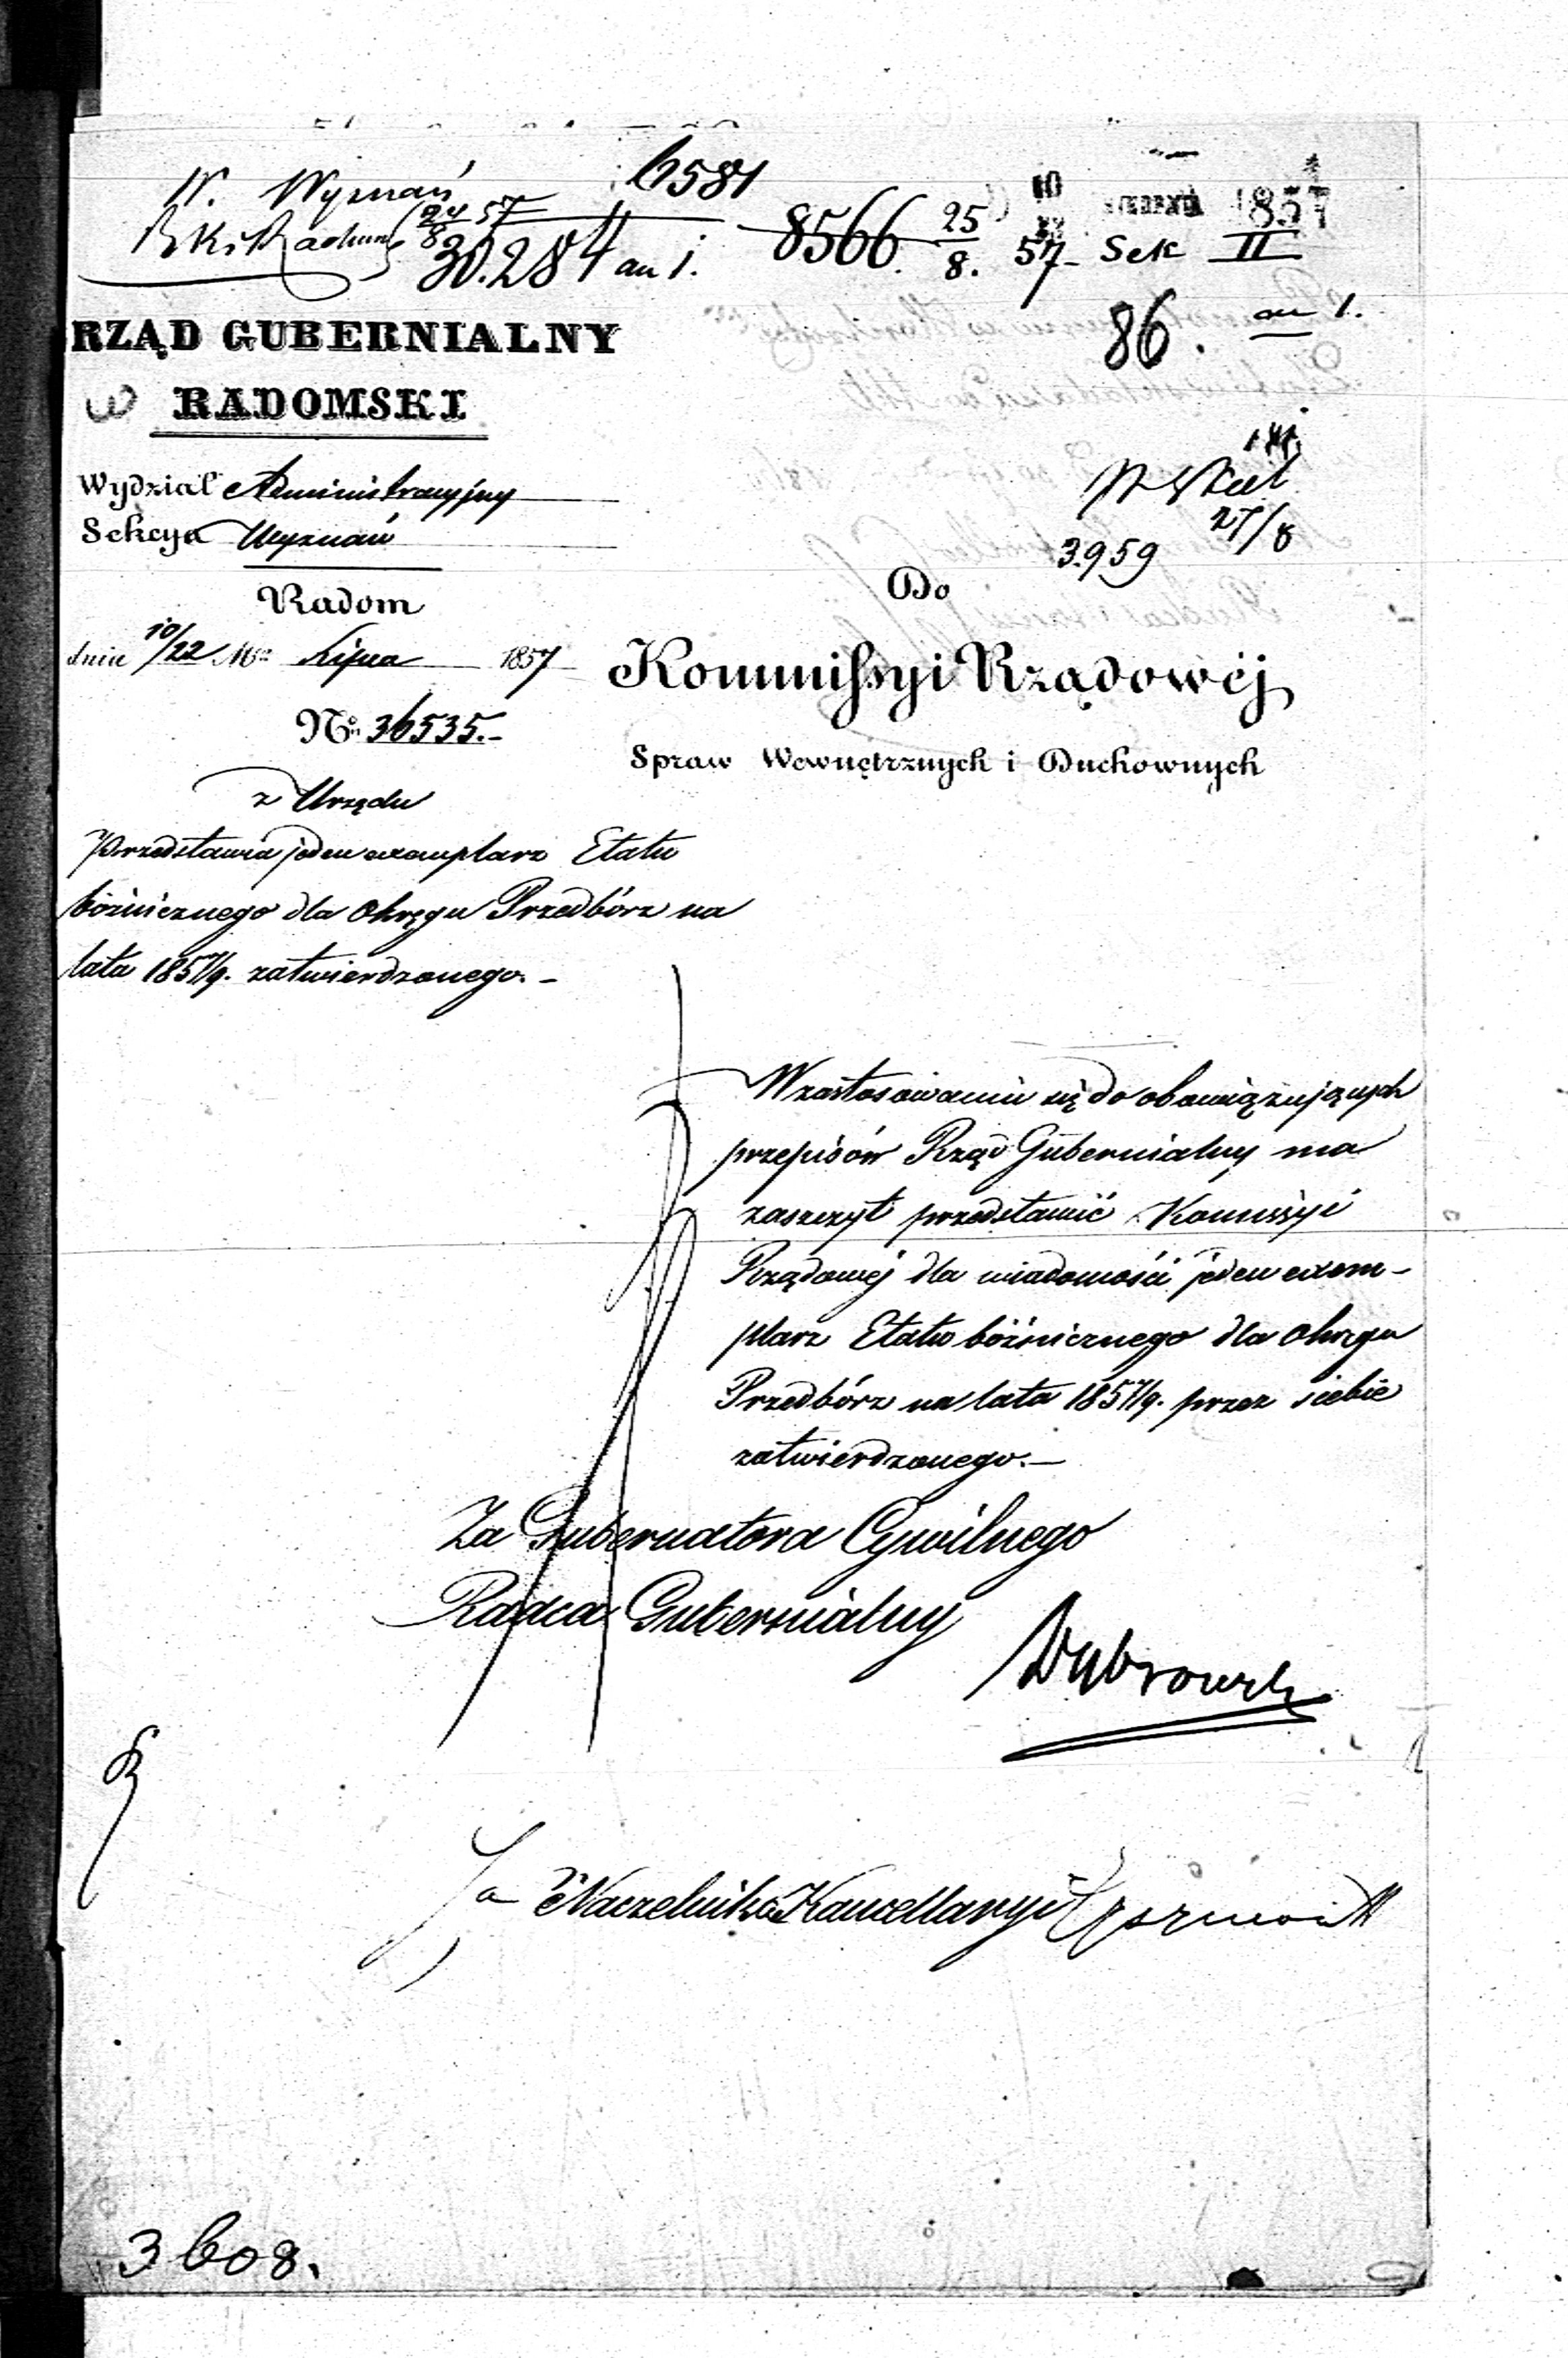 W. Wyznań 6581
24/8 57
30.284 an 1. 8566. 25/8. 57 Sek II
10 22 SIERPNIA 1857
86. an 1.
RZĄD GUBERNIALNY
RADOMSKI
Wydział Administracyjny
Sekcya Wyznań
27/8
3959
Radom
dnia 10/22 Mca Lipca 1857
No 36535.-
Do
Kommissyi Rządowéj
Spraw Wewnętrznych i Duchownych
z Urzędu
Przedstawia jeden exemplarz Etatu
bóżnicznego dla Okręgu Przedbórz na
lata 1857/9. zatwierdzonego.-
W zastosowaniu się do obowiązujących
przepisów Rząd Gubernialny ma
zaszczyt przedstawić Komissyi
Rządowej dla wiadomości jeden exem-
plarz Etatu bóżnicznego dla Okręgu
Przedbórz na lata 1857/9. przez siebie
zatwierdzonego.-
Za Gubernatora Cywilnego
Radca Gubernialny
Dąbrowski
Za Naczelnika Kancellaryi
3608.